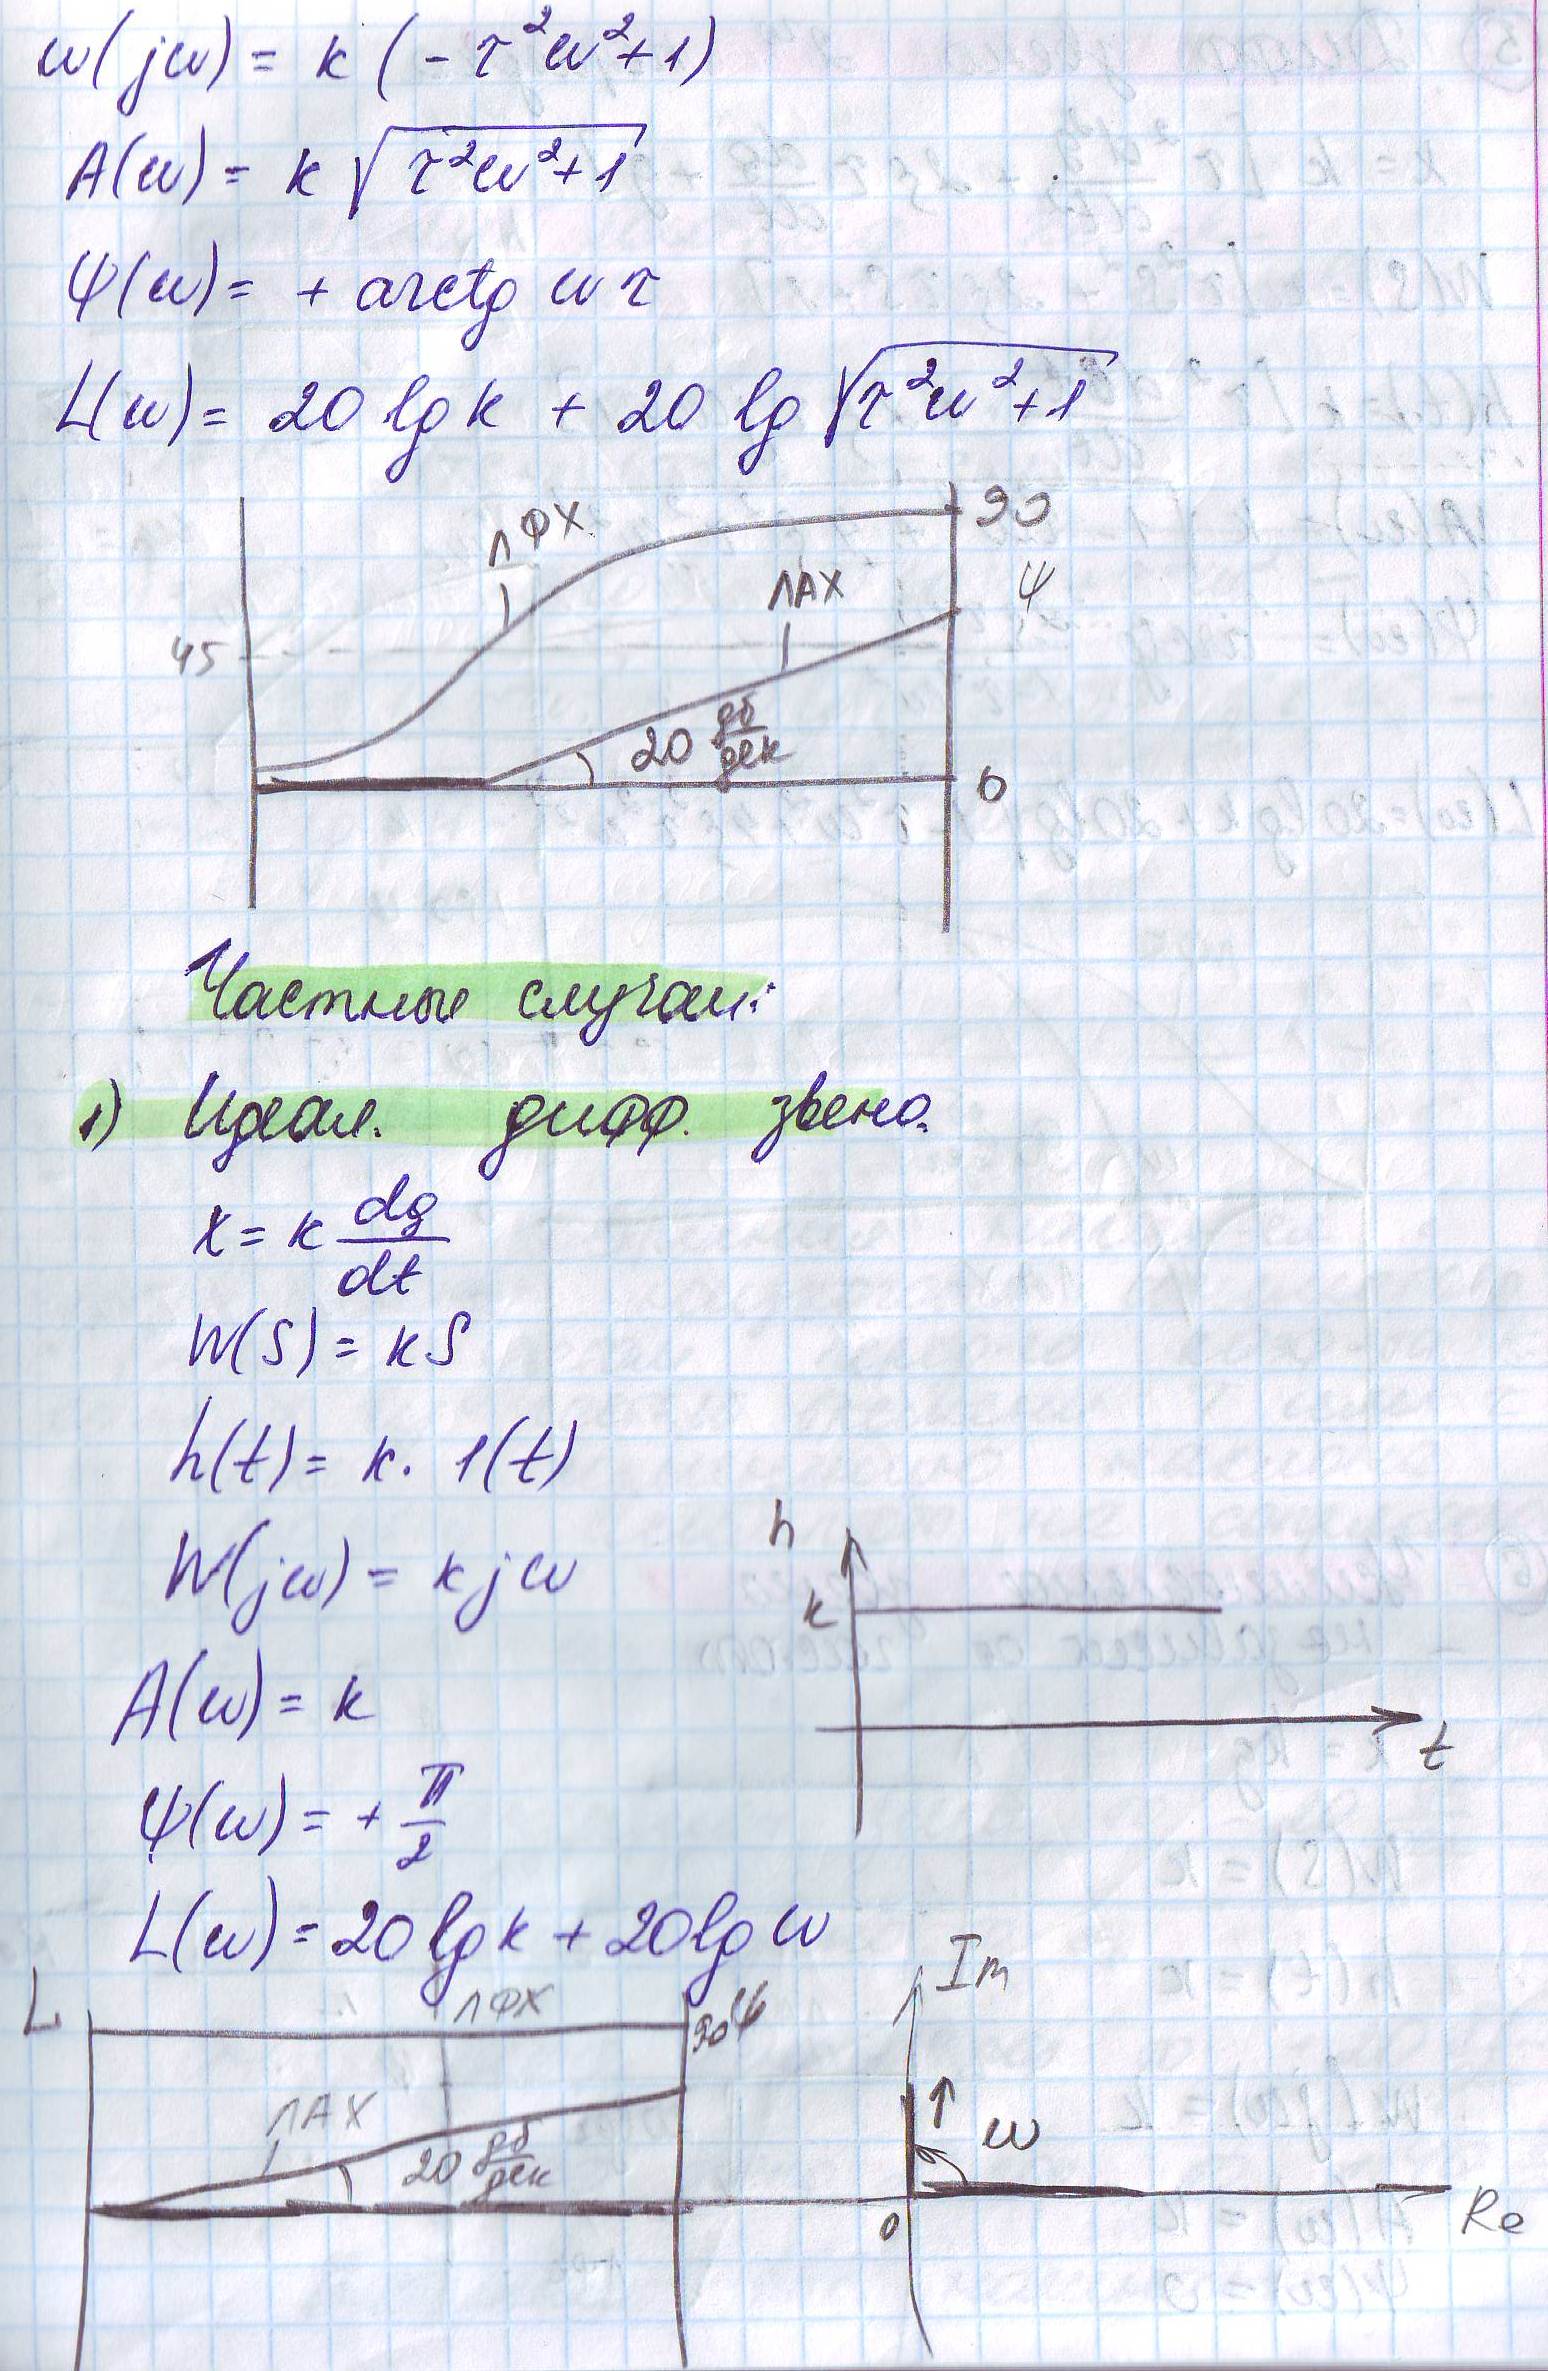 w(jω) = k (-τ²ω²+1)
A(ω) = k √(τ²ω²+1)
Ψ(ω) = + arctg ωτ
L(ω) = 20 lg k + 20 lg √(τ²ω²+1)
ЛФХ 90
ЛАХ Ψ
45
20 дб/дек
0
Частные случаи:
1) Идеал. дифф. звено.
x = k dg/dt
W(S) = kS
h(t) = k · 1(t)
h
W(jω) = kjω
k
A(ω) = k
t
Ψ(ω) = + π/2
L(ω) = 20 lg k + 20 lg ω
L ЛФХ 90 Ψ Im
ЛАХ
20 дб/дек ω
0 Re